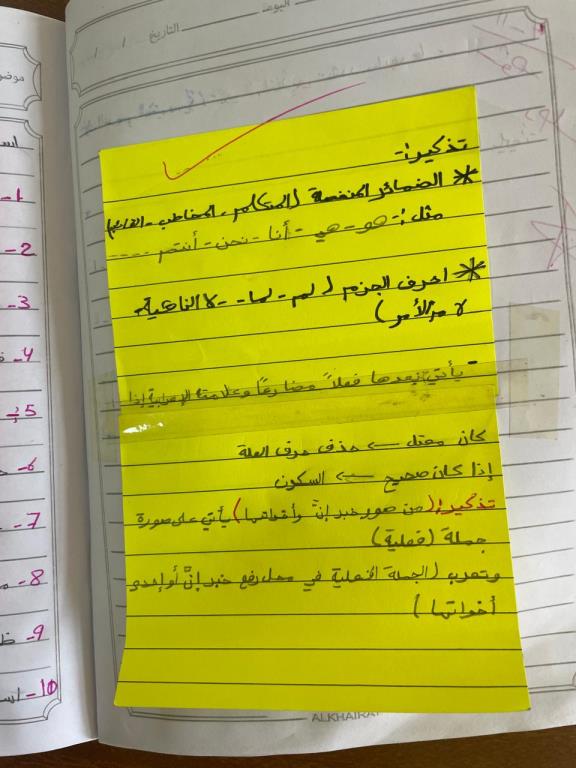 اليوم
التاريخ / /
موضو
تذكير:-
* الضمائر المنفصلة (المتكلم - المخاطب - الغائب)
مثل:- هو - هي - أنا - نحن - أنتم - ....
* احرف الجزم (لم - لما - لا الناهية -
لام الأمر)
- يأتي بعدها فعلاً مضارعًا وعلامته الإعرابية إذا
كان معتل ← حذف حرف العلة
إذا كان صحيح ← السكون
تذكير: (من صور خبر إنَّ وأخواتها) يأتي على صورة
جملة (فعلية)
وتعرب (الجملة الفعلية في محل رفع خبر إنَّ أو إحدى
أخواتها)
1-
2-
3-
4-
5-
6-
7-
8-
9-
10-
ALKHAIRA